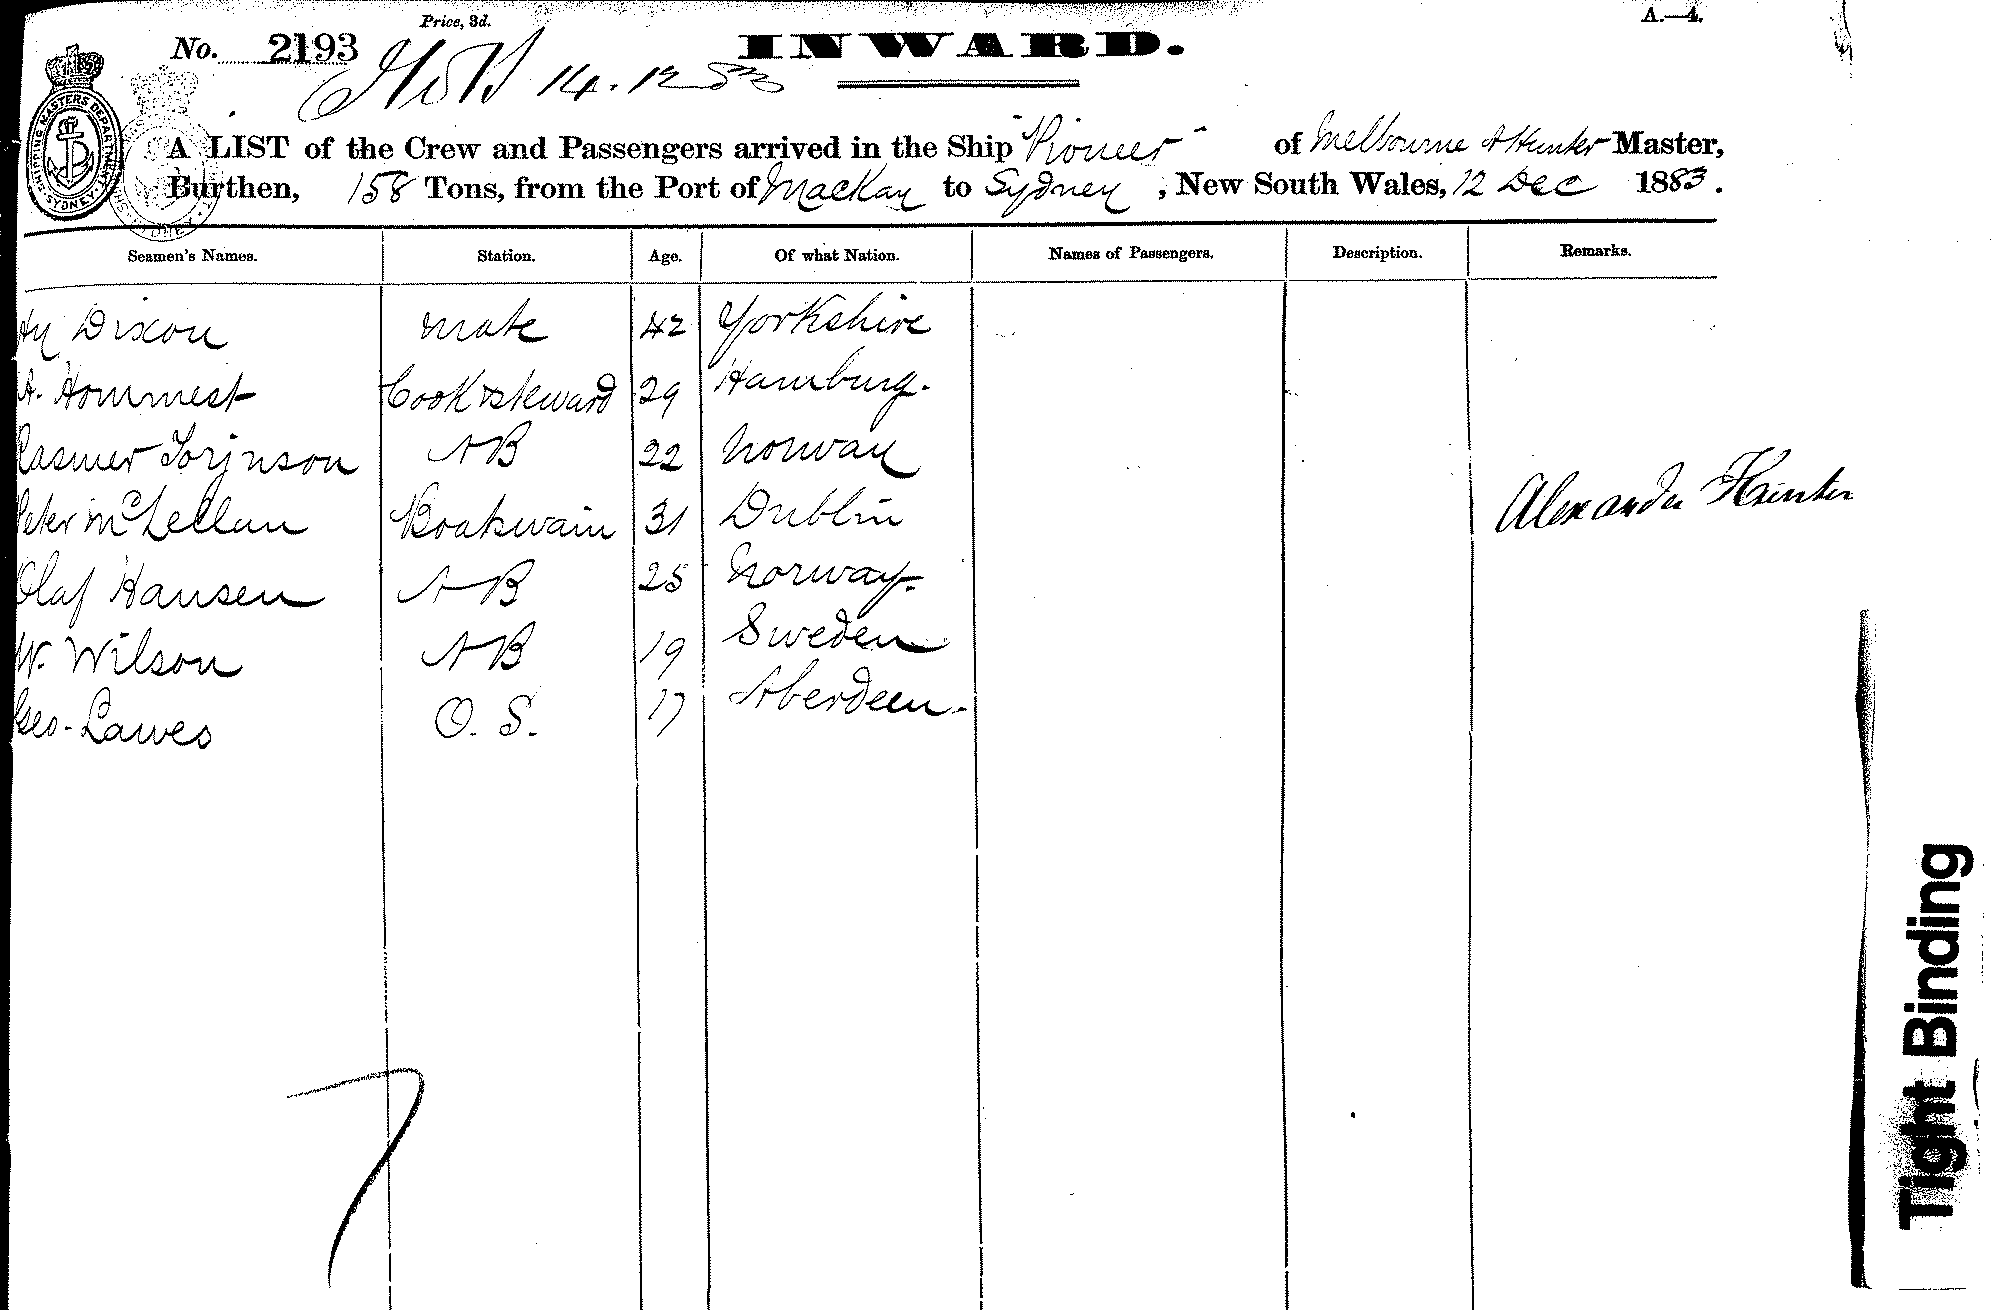 Price, 3d.
A.—4.
No. 2193
INWARD.
14.12.83
SHIPPING MASTERS DEPARTMENT SYDNEY
A LIST of the Crew and Passengers arrived in the Ship "Pioneer" of Melbourne A Hunter Master,
Burthen, 158 Tons, from the Port of MacKay to Sydney, New South Wales, 12 Dec 1883.
Seamen's Names. Station. Age. Of what Nation. Names of Passengers. Description. Remarks.
Hy Dixon mate 42 Yorkshire
A. Hommest Cook & Steward 29 Hamburg.
Rasmer Torjnson AB 22 Norway
Peter McLellan Boatswain 31 Dublin
Alexander Hunter
Olaf Hansen AB 25 Norway.
W. Wilson AB 19 Sweden
Geo. Lawes O. S. 17 Aberdeen.
7
Tight Binding